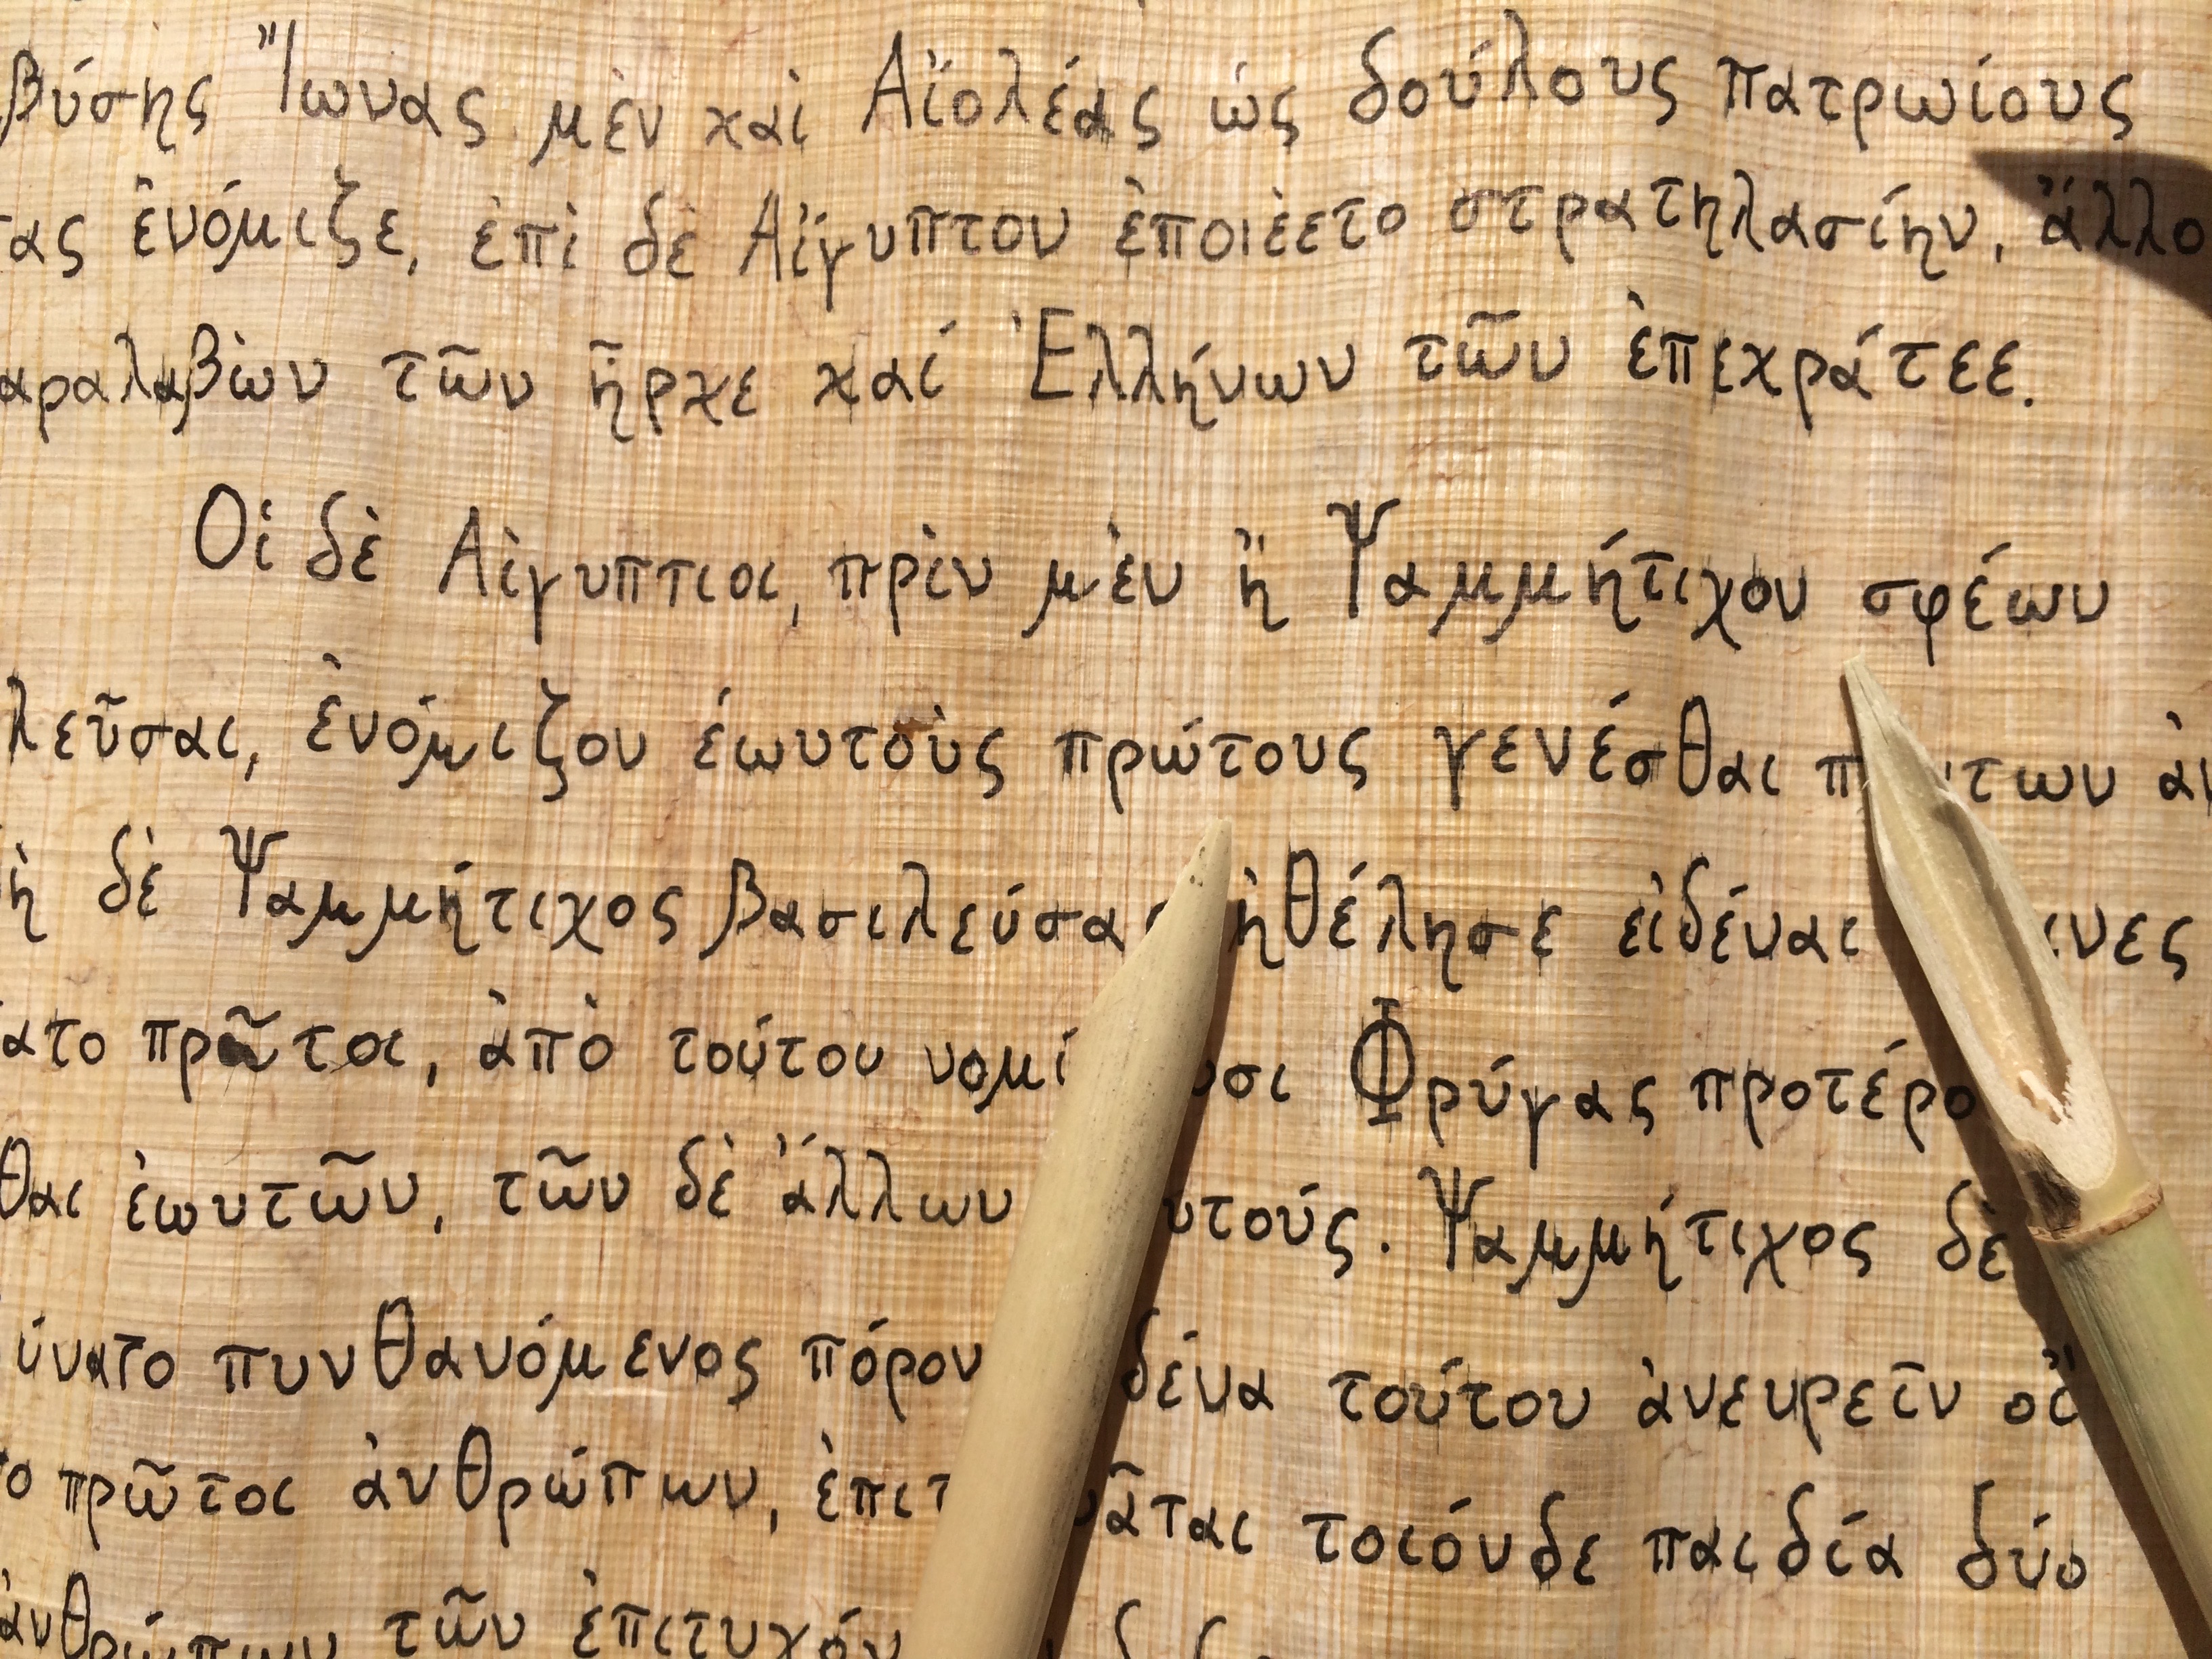 βύσης Ἴωνας μὲν καὶ Αἰολέας ὡς δούλους πατρωίους
τας ἐνόμιζε, ἐπὶ δὲ Αἴγυπτον ἐποιέετο στρατηλασίην, ἄλλο
αραλαβὼν τῶν ἦρχε καί Ἑλλήνων τῶν ἐπεκράτεε.
Οἱ δὲ Αἰγυπτιοι, πρὶν μὲν ἢ Ψαμμήτιχον σφέων
λεῦσαι, ἐνόμιζον ἑωυτοὺς πρώτους γενέσθαι ἀν
ὴ δὲ Ψαμμήτιχος βασιλεύσας ἠθέλησε εἰδέναι ινες
ατο πρῶτοι, ἀπὸ τούτου Φρύγας προτέρο
θαι ἑωυτῶν, τῶν δὲ ἄλλων υτούς. Ψαμμήτιχος δὲ
ύνατο πυνθανόμενος πόρον δένα τούτου ἀνευρεῖν οἵ
ο πρῶτοι ἀνθρώπων, ἐπιτ ᾶται τοιόνδε παιδία δύο
ἀνθρώπων τῶν ἐπιτυχόν